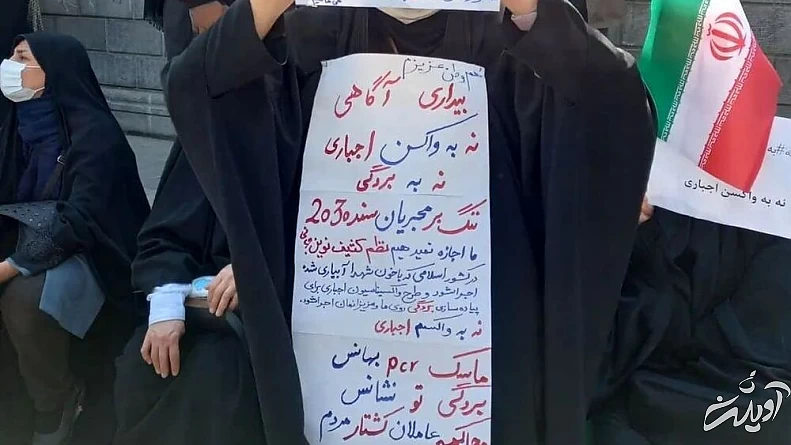 هم وطن عزیزم
بیداری آگاهی
نه به واکسن اجباری
نه به بردگی
ننگ بر مجریان سند 2030
ما اجازه نمیدهیم نظم کثیف نوین جهانی
در کشور اسلامی که با خون شهدا آبیاری شده
اجرا شود و طرح واکسیناسیون اجباری برای
پیاده سازی بردگی روی ما و عزیزانمان اجرا شود.
نه به واکسم اجباری
ماسک pcr بهانس
بردگی تو نشانس
عاملان کشتار مردم
نه به واکسن اجباری
آوش